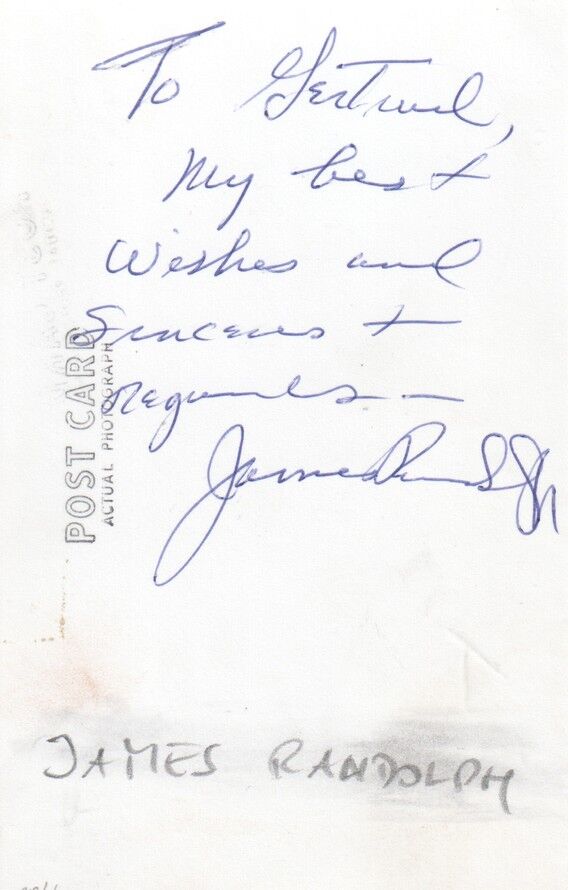 To Gertrud,
My best
Wishes and
Sincerest
Regards —
James Randolph
POST CARD
ACTUAL PHOTOGRAPH
JAMES RANDOLPH